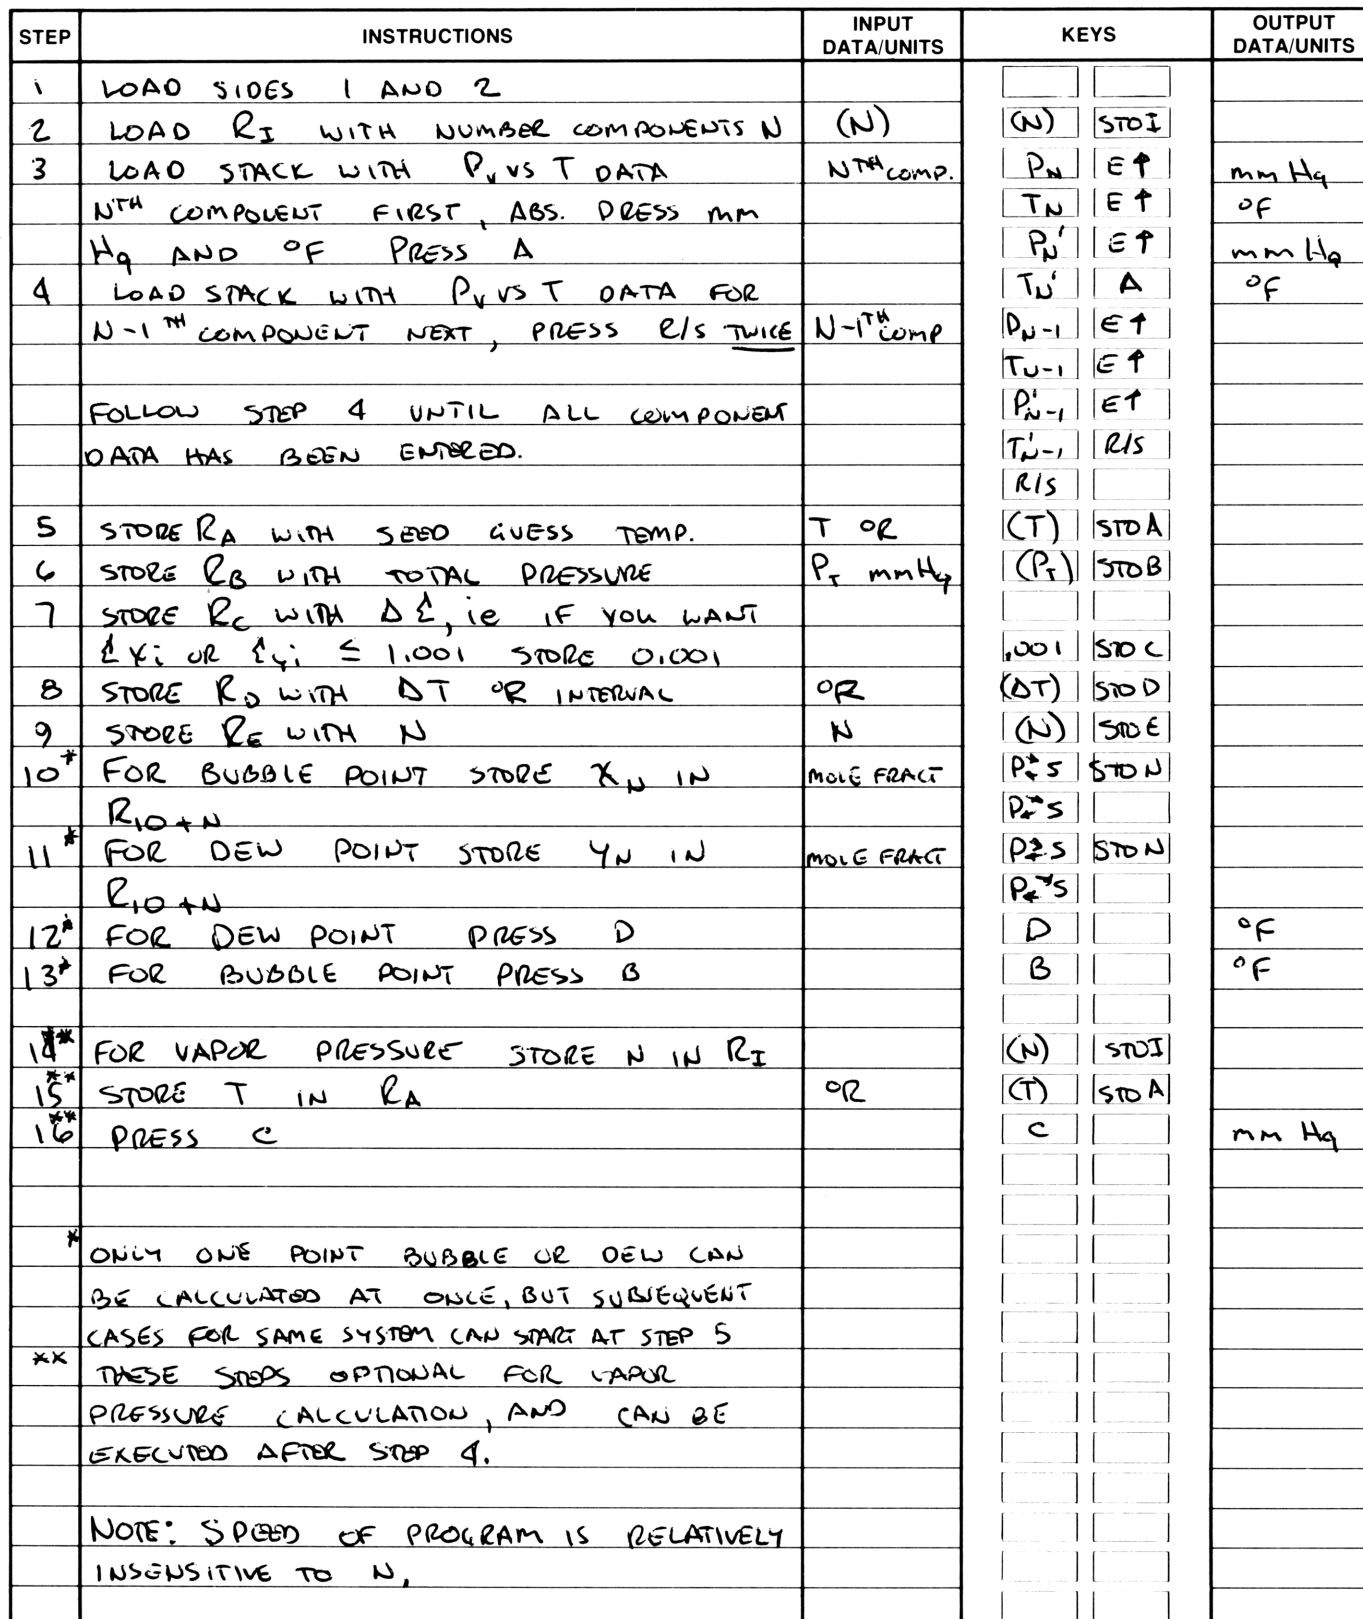 STEP INSTRUCTIONS INPUT DATA/UNITS KEYS OUTPUT DATA/UNITS
1 LOAD SIDES 1 AND 2
2 LOAD R_I WITH NUMBER COMPONENTS N (N) (N) STOI
3 LOAD STACK WITH P_V VS T DATA N^TH COMP. P_N E↑ mm Hg
N^TH COMPONENT FIRST, ABS. PRESS mm T_N E↑ °F
Hg AND °F PRESS A P_N' E↑ mm Hg
4 LOAD STACK WITH P_V VS T DATA FOR T_N' A °F
N-1^TH COMPONENT NEXT, PRESS R/S TWICE N-1^TH COMP P_N-1 E↑
T_N-1 E↑
FOLLOW STEP 4 UNTIL ALL COMPONENT P'_N-1 E↑
DATA HAS BEEN ENTERED. T'_N-1 R/S
R/S
5 STORE R_A WITH SEED GUESS TEMP. T °R (T) STOA
6 STORE R_B WITH TOTAL PRESSURE P_T mmHg (P_T) STOB
7 STORE R_C WITH ΔΣ, ie IF YOU WANT
Σxi OR Σyi ≤ 1.001 STORE 0.001 .001 STO C
8 STORE R_D WITH ΔT °R INTERVAL °R (ΔT) STO D
9 STORE R_E WITH N N (N) STO E
10* FOR BUBBLE POINT STORE X_N IN MOLE FRACT P⇄S STO N
R_10+N P⇄S
11* FOR DEW POINT STORE Y_N IN MOLE FRACT P⇄S STO N
R_10+N P⇄S
12* FOR DEW POINT PRESS D D °F
13* FOR BUBBLE POINT PRESS B B °F
14** FOR VAPOR PRESSURE STORE N IN R_I (N) STOI
15** STORE T IN R_A °R (T) STO A
16** PRESS C C mm Hg
* ONLY ONE POINT BUBBLE OR DEW CAN
BE CALCULATED AT ONCE, BUT SUBSEQUENT
CASES FOR SAME SYSTEM CAN START AT STEP 5
** THESE STEPS OPTIONAL FOR VAPOR
PRESSURE CALCULATION, AND CAN BE
EXECUTED AFTER STEP 4.
NOTE: SPEED OF PROGRAM IS RELATIVELY
INSENSITIVE TO N.